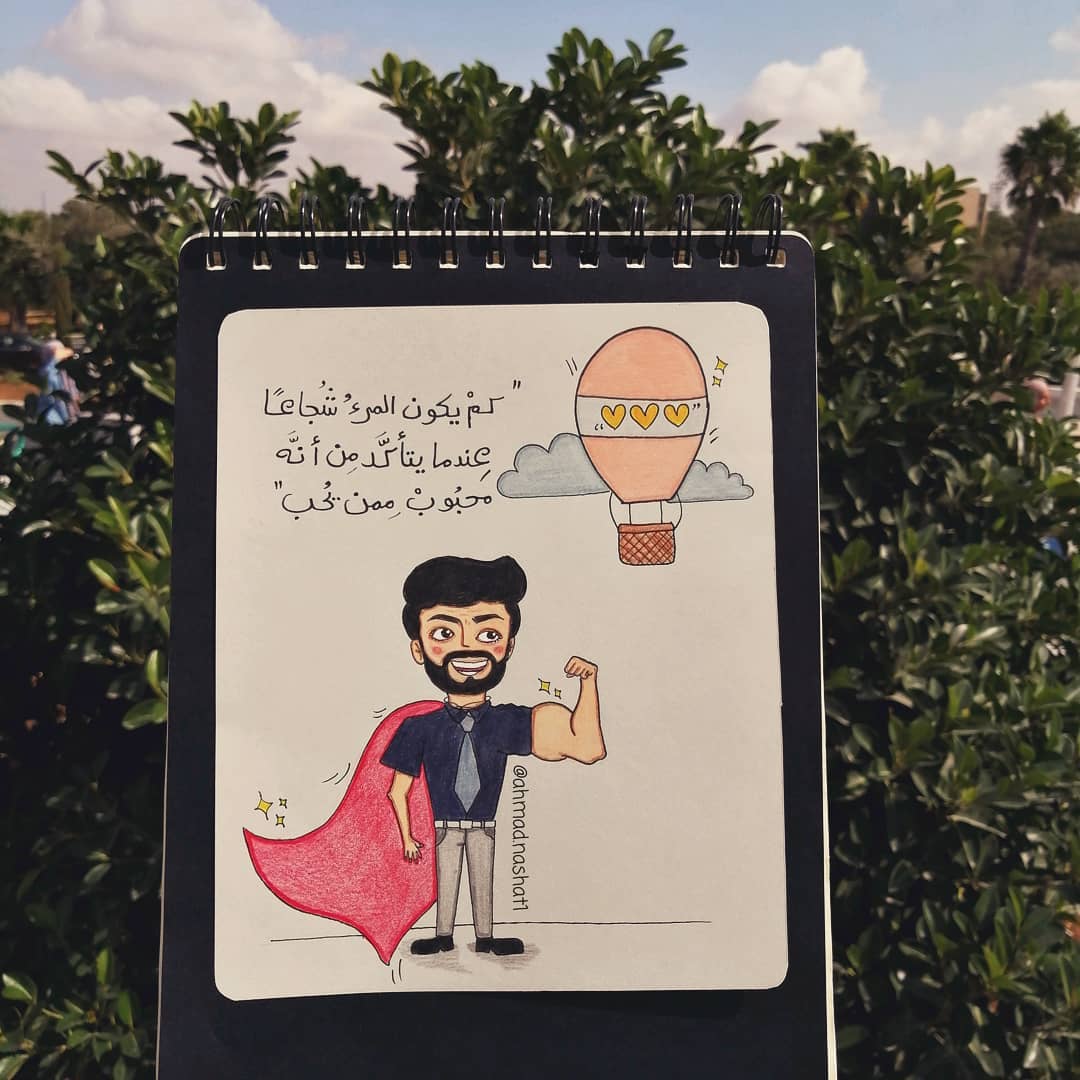 "كمْ يكون المرءُ شُجاعًا
عِندما يتأكَّد مِن أنَّه
محبُوبْ مِمن يُحب"
@ahmad.nashat1